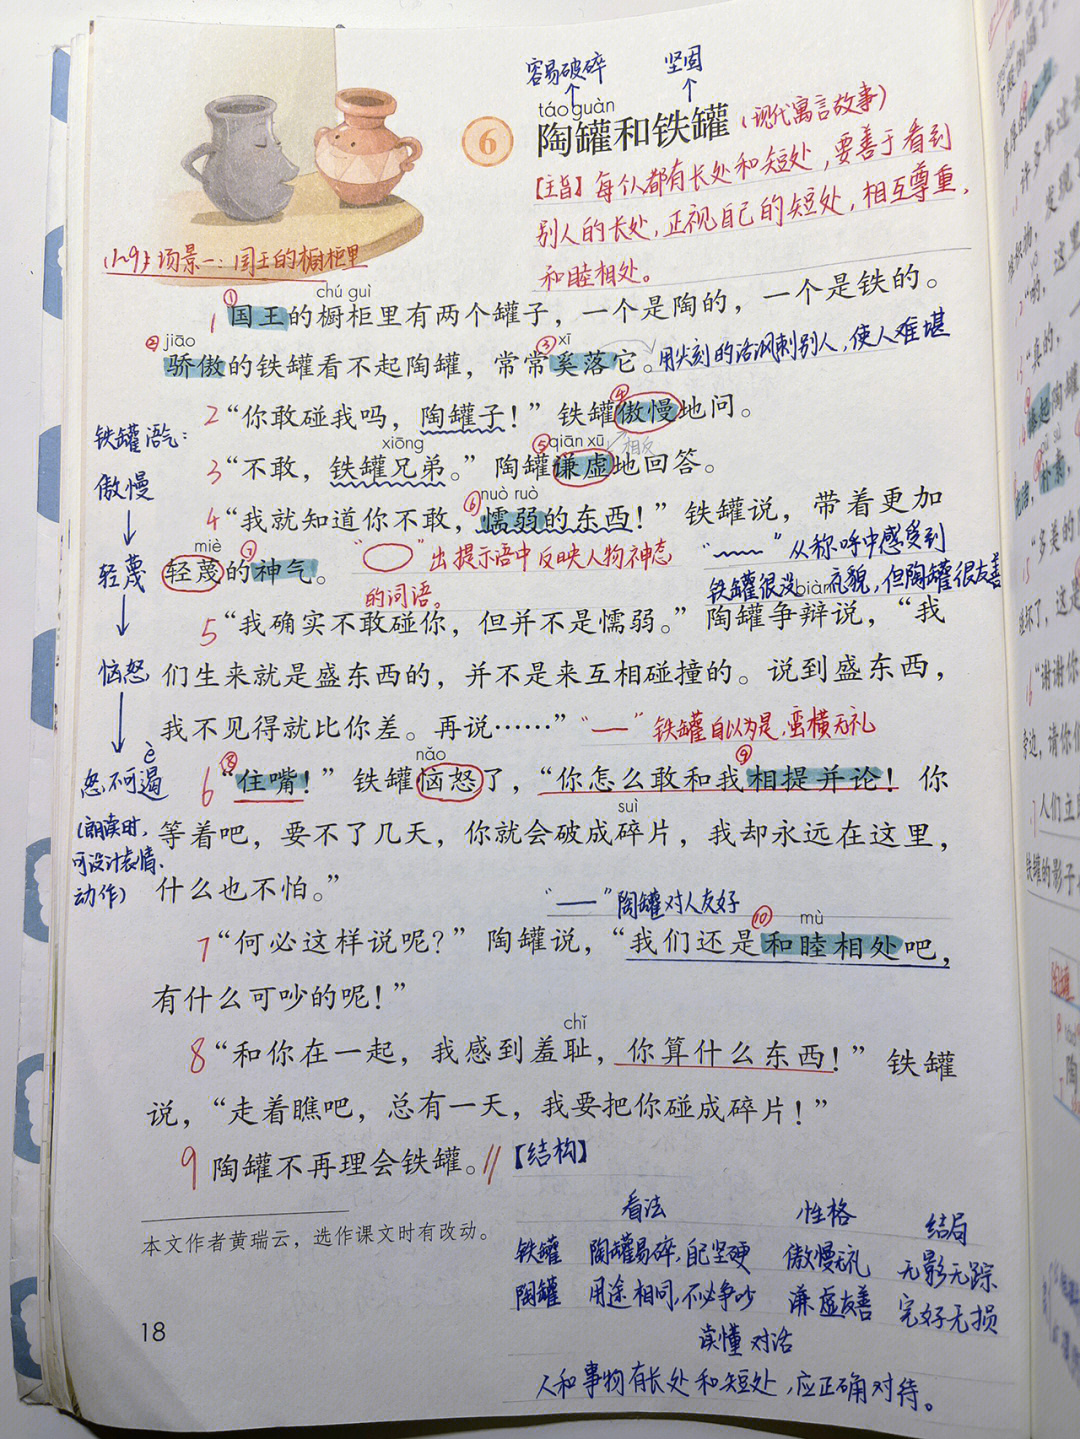 容易破碎 坚固
táo guàn
6 陶罐和铁罐(现代寓言故事)
【主旨】每个人都有长处和短处,要善于看到
别人的长处,正视自己的短处,相互尊重,
和睦相处。
(1~9)场景一:国王的橱柜里
chú guì
①
1 国王的橱柜里有两个罐子,一个是陶的,一个是铁的。
② jiāo ③ xī
骄傲的铁罐看不起陶罐,常常奚落它。用尖刻的话讽刺别人,使人难堪
④
2“你敢碰我吗,陶罐子!”铁罐傲慢地问。
铁罐语气:
xiōng ⑤ qiān xū 相反
3“不敢,铁罐兄弟。”陶罐谦虚地回答。
傲慢
⑥ nuò ruò
4“我就知道你不敢,懦弱的东西!”铁罐说,带着更加
miè ⑦
轻蔑 轻蔑的神气。
“○”出提示语中反映人物神态
的词语。
“﹏﹏”从称呼中感受到
铁罐很没礼貌,但陶罐很友善
biàn
5“我确实不敢碰你,但并不是懦弱。”陶罐争辩说,“我
恼怒 们生来就是盛东西的,并不是来互相碰撞的。说到盛东西,
我不见得就比你差。再说……”“—”铁罐自以为是,蛮横无礼
è ⑧ nǎo ⑨
怒不可遏 6“住嘴!”铁罐恼怒了,“你怎么敢和我相提并论!你
suì
(朗读时, 等着吧,要不了几天,你就会破成碎片,我却永远在这里,
可设计表情、
动作) 什么也不怕。”
“—”陶罐对人友好
⑩ mù
7“何必这样说呢?”陶罐说,“我们还是和睦相处吧,
有什么可吵的呢!”
chǐ
8“和你在一起,我感到羞耻,你算什么东西!”铁罐
说,“走着瞧吧,总有一天,我要把你碰成碎片!”
9 陶罐不再理会铁罐。//【结构】
看法 性格 结局
本文作者黄瑞云,选作课文时有改动。
铁罐 陶罐易碎,自己坚硬 傲慢无礼 无影无踪
陶罐 用途相同,不必争吵 谦虚友善 完好无损
18
读懂对话
人和事物有长处和短处,应正确对待。